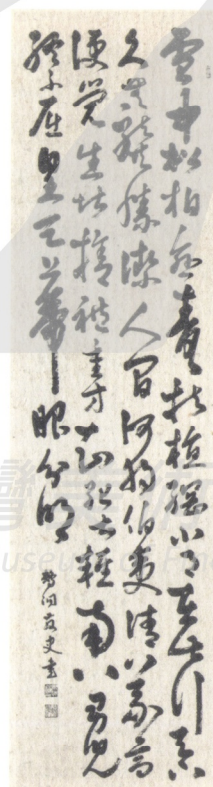 雪中松柏愈青青扶植綱常在此行天下
久無龔勝潔人間何獨伯夷清義高
便覺生堪捨禮重方知死甚輕南八男兒
終不屈皇天上帝眼分明
史書